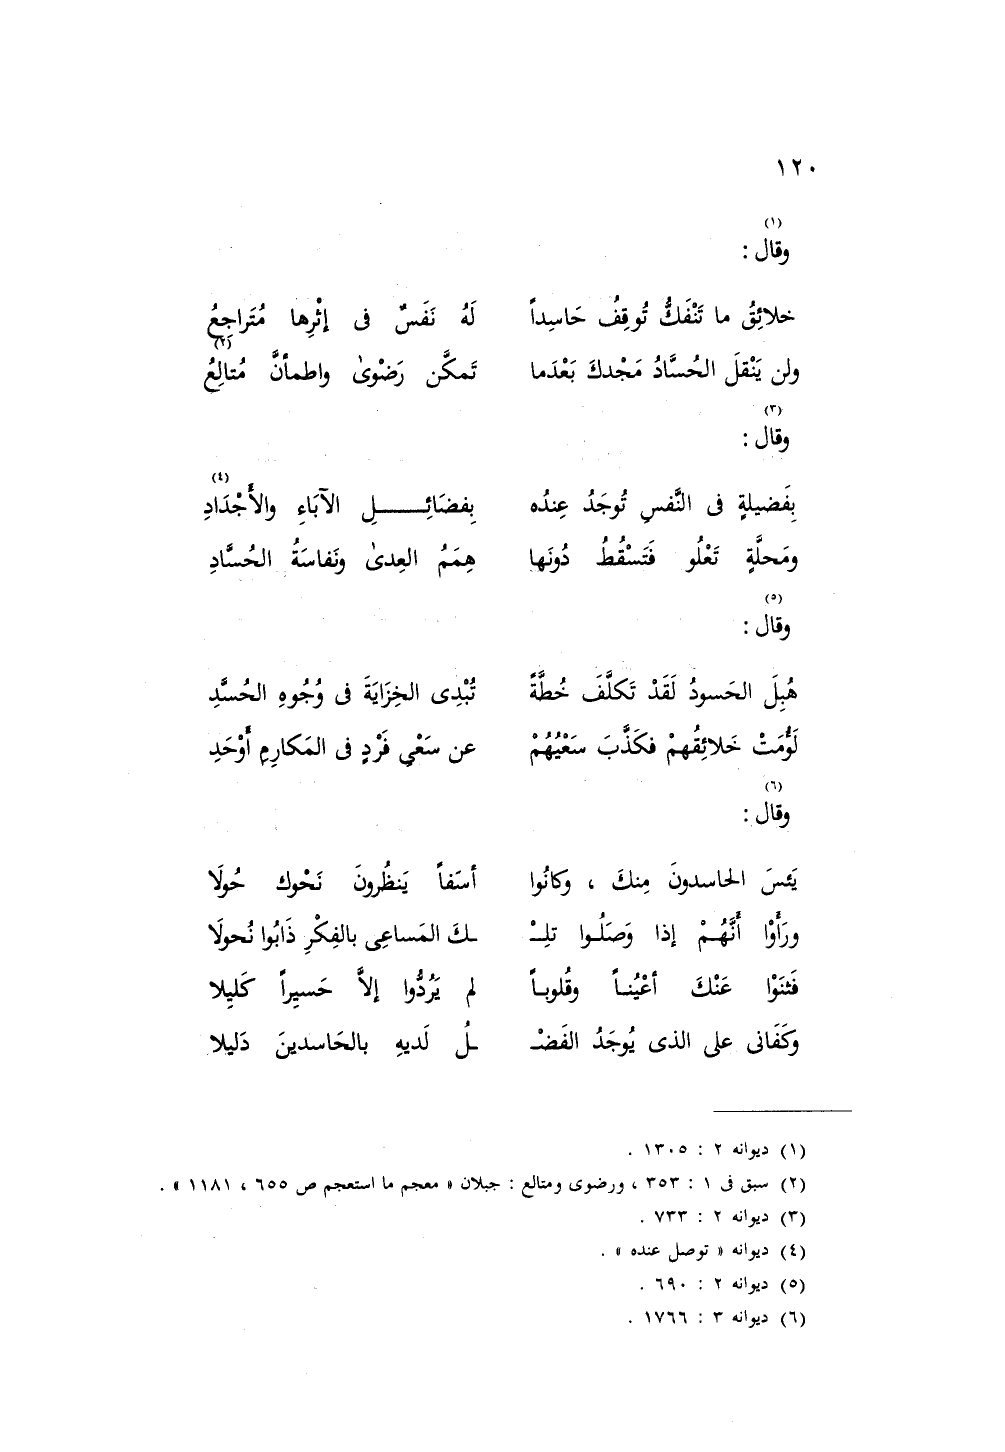 ١٢٠
(١)
وقال :
خلائِقُ ما تَنْفَكُّ تُوقِفُ حَاسِداً لَهُ نَفَسٌ فى إثْرِها مُتَراجِعُ
(٢)
ولن يَنْقلَ الحُسَّادُ مَجْدكَ بَعْدَما تَمكَّن رَضْوىٰ واطمأنَّ مُتالِعُ
(٣)
وقال :
(٤)
بِفَضيلةٍ فى النَّفسِ تُوجَدُ عِندُه بِفضَائِــــــلِ الآبَاءِ والأَجْدَادِ
ومَحلَّةٍ تَعْلُو فَتَسْقُطُ دُونَها هِمَمُ العِدىٰ ونَفاسَةُ الحُسَّادِ
(٥)
وقال :
هُبِلَ الحَسودُ لَقَدْ تَكلَّفَ خُطَّةً تُبْدِى الخِزَايَةَ فى وُجُوهِ الحُسَّدِ
لَؤُمَتْ خَلائِقُهمْ فكَذَّبَ سَعْيُهُمْ عن سَعْىِ فَرْدٍ فى المَكارِمِ أَوْحَدِ
(٦)
وقال :
يَئسَ الحاسدونَ مِنكَ ، وكانُوا أسَفاً يَنظُرونَ نَحْوكَ حُولَا
ورَأَوْا أَنَّهُـمْ إذا وَصَلُـوا تلِـْ ـكَ المَساعِى بالفِكْرِ ذَابُوا نُحولَا
فَثنَوْا عَنْكَ أعْيُنـاً وقُلوبـاً لم يَرُدُّوا إلاَّ حَسيراً كَلِيلا
وكَفَانى على الذى يُوجَدُ الفَضْـ ـلُ لَديهِ بالحَاسدينَ دَليلا
(١) ديوانه ٢ : ١٣٠٥ .
(٢) سبق فى ١ : ٣٥٣ ، ورضوى ومتالع : جبلان « معجم ما استعجم ص ٦٥٥ ، ١١٨١ » .
(٣) ديوانه ٢ : ٧٣٣ .
(٤) ديوانه « توصل عنده » .
(٥) ديوانه ٢ : ٦٩٠ .
(٦) ديوانه ٣ : ١٧٦٦ .